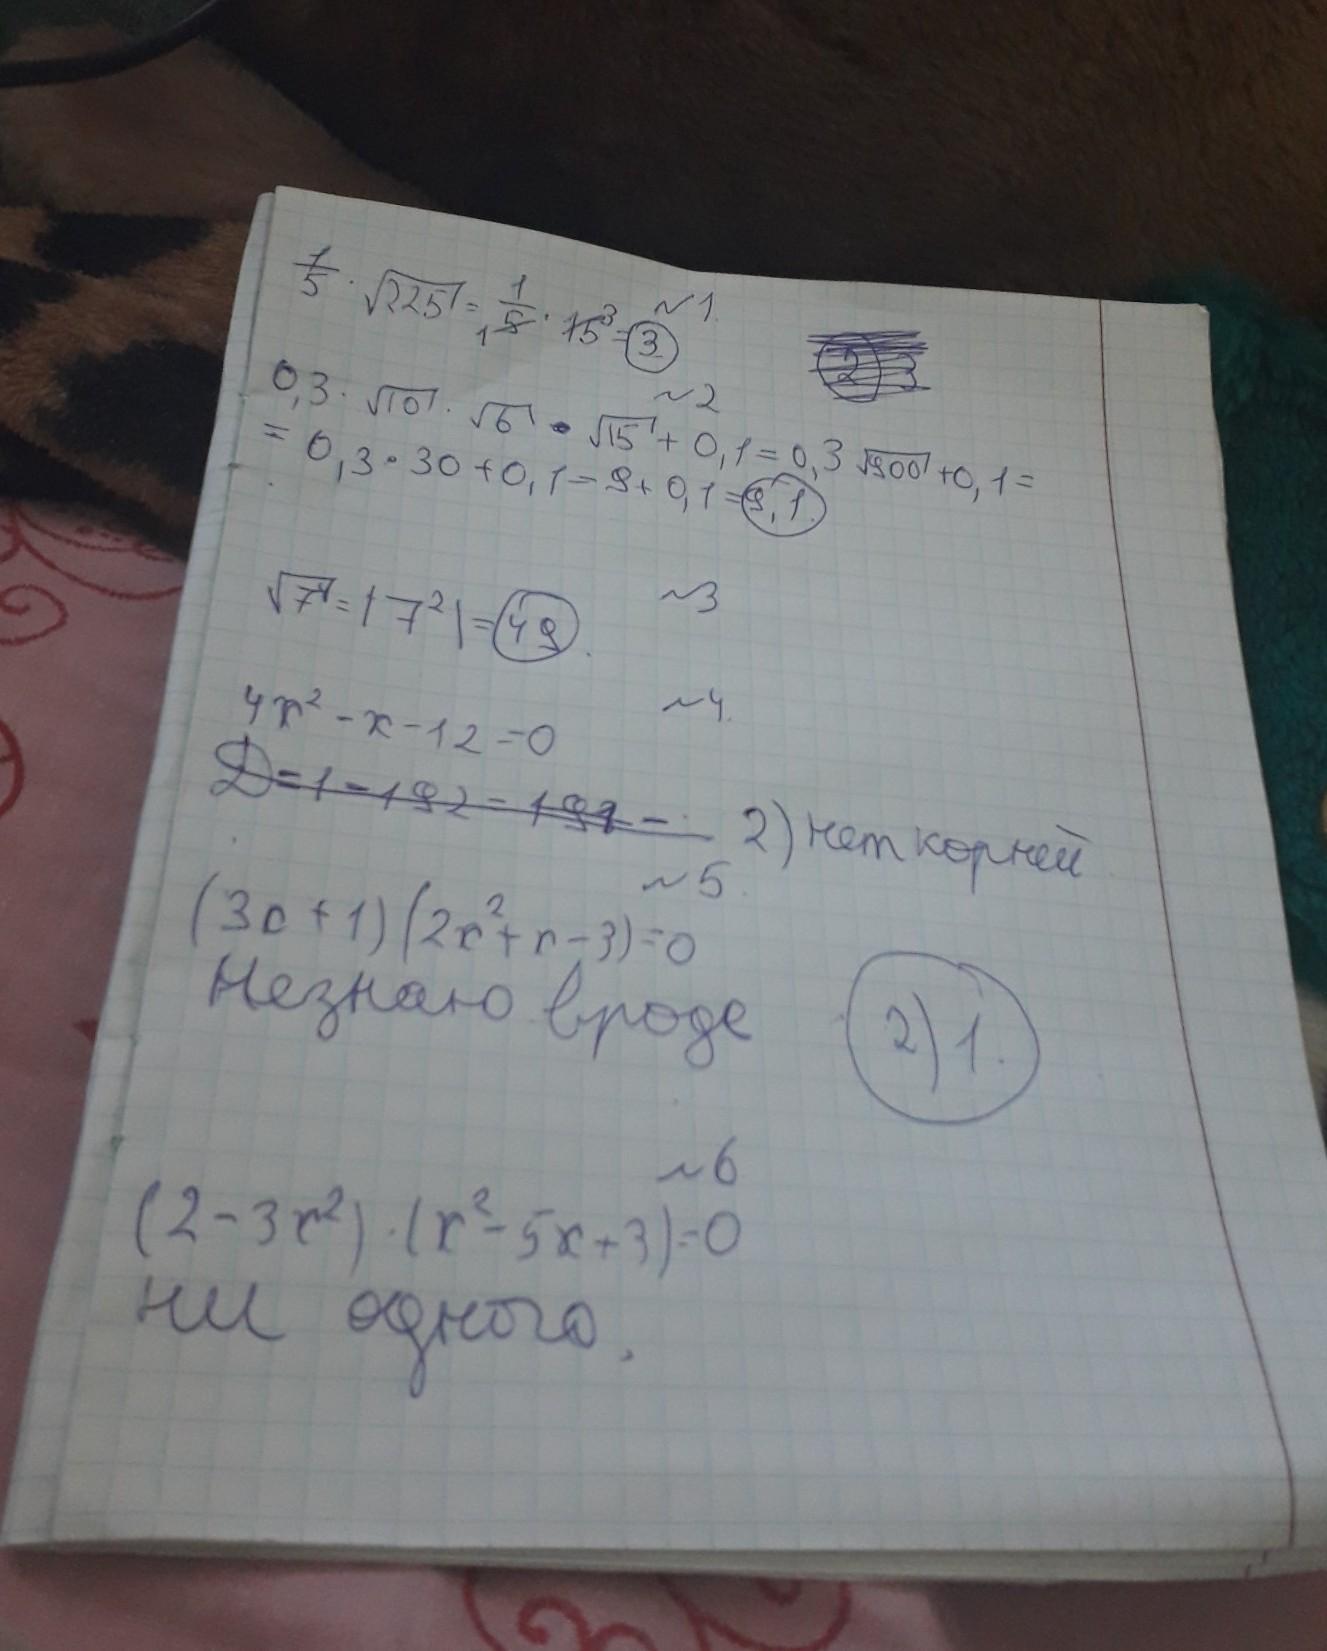 ~1.
1/5 · √225 = 1/5 · 15 = 3
~2
0,3 · √10 · √6 · √15 + 0,1 = 0,3 √900 + 0,1 =
= 0,3 · 30 + 0,1 = 9 + 0,1 = 9,1.
~3
√7⁴ = |7²| = 49.
~4.
4x² - x - 12 = 0
D = 1 - 192 = 191 -
2) нет корней
~5.
(3x + 1) (2x² + x - 3) = 0
Незнаю вроде 2) 1.
~6
(2 - 3x²) · (x² - 5x + 3) = 0
ни одного.